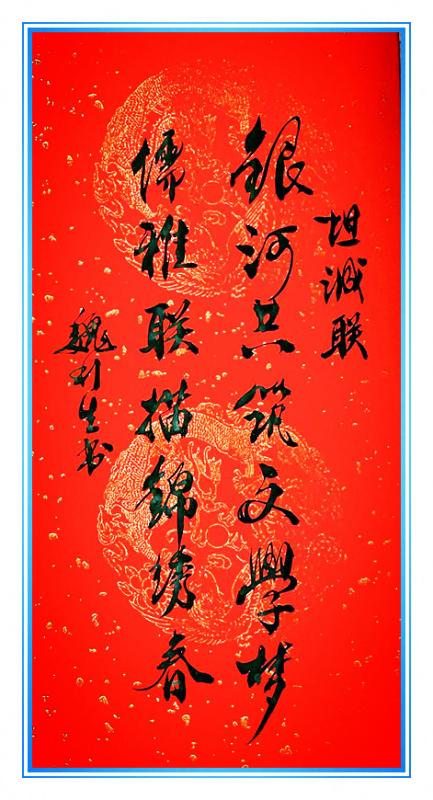 坦联
銀河共筑文學梦
儒雅联描錦绣春
魏利生书